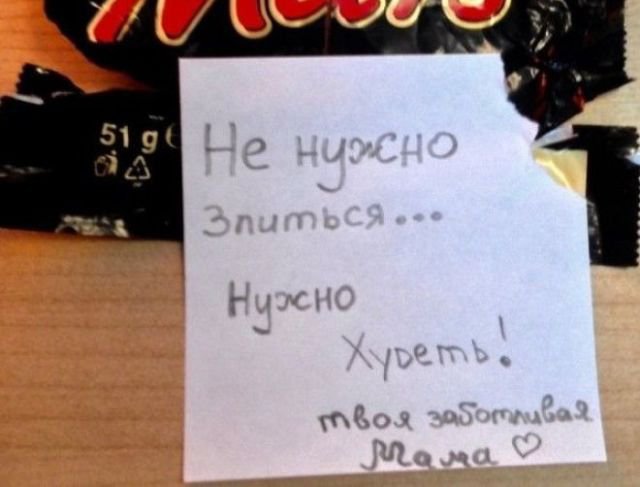 Mars
51 g e
Не нужно
Злиться...
Нужно
Худеть!
твоя заботливая
Мама ♡